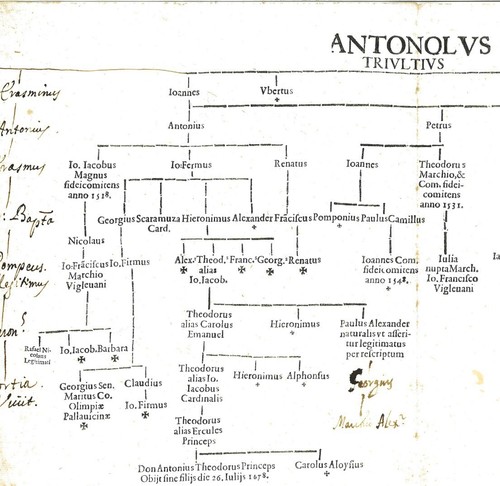 ANTONOLVS
TRIVLTIVS
Erasminus
Ioannes
Vbertus
Antonius
Antonius
Petrus
Erasmus
Io, Iacobus
Magnus
fideicomitens
anno 1518.
Io: Fermus
Renatus
Ioannes
Theodorus
Marchio, &
Com. fidei-
comitens
anno 1531.
Bapta
Georgius Scaramuza Hieronimus Alexander Fraciscus Pomponius Paulus Camillus
Card.
Nicolaus
Pompeus.
legitimus
Io-Fraciscus Io. Firmus
Matchio
Vigleuani
Alex. Theod. Franc. Georg. Renatus
alias
Io. Iacob.
Ioannes Com.
fidei comitens
anno 1548.
Iulia
nupta March.
Io. Francisco
Vigleuani
Theodorus
alias Carolus
Emanuel
Hieronimus
Paulus Alexander
naturalis vt asseri-
tur legitimatus
per rescriptum
Rafael Ni-
colaus
Legitimus
Io. Iacob. Barbara
Georgius Sen.
Maritus Co.
Olimpiæ
Pallauicinæ
Claudius
Io. Firmus
Theodorus
alias Io.
Iacobus
Cardinalis
Hieronimus
Alphonsus
Georgius
Theodorus
alias Ercules
Princeps
Don Antonius Theodorus Princeps
Obijt sine filijs die 26. Iulijs 1678.
Carolus Aloysius